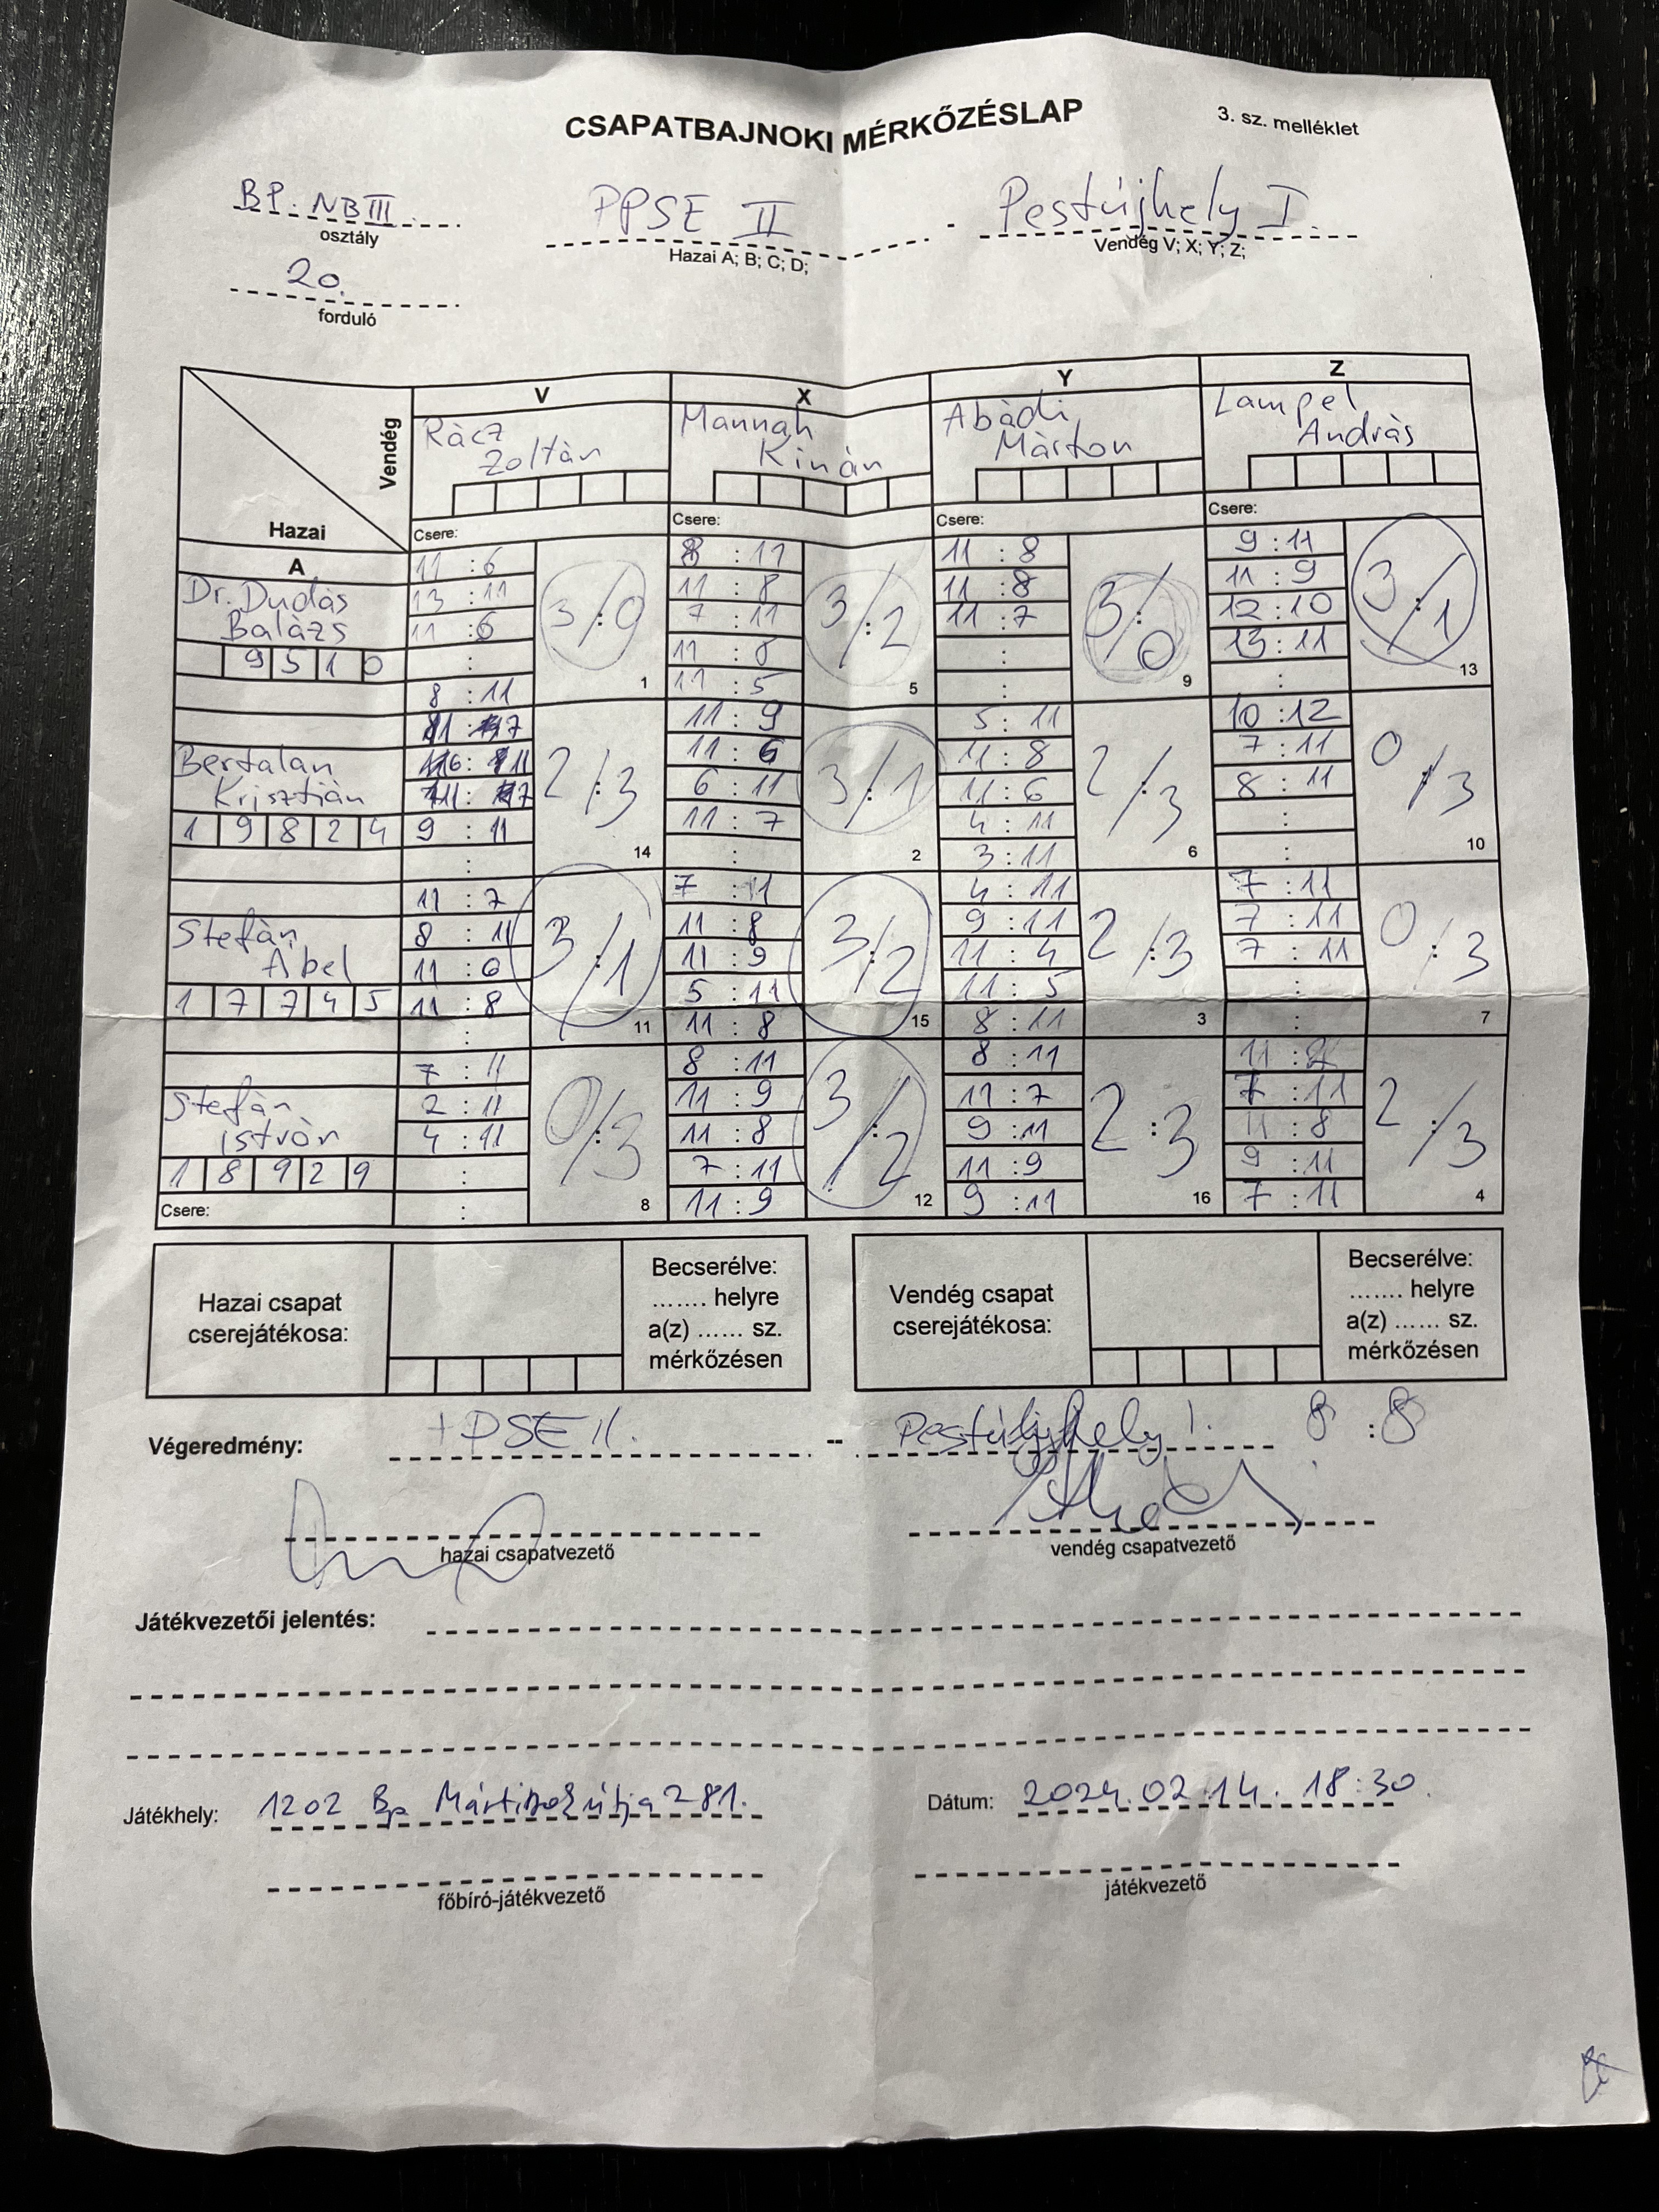 CSAPATBAJNOKI MÉRKŐZÉSLAP
3. sz. melléklet
BP. NB III.
osztály
PPSE II
Hazai A; B; C; D;
-
Pestújhely I.
Vendég V; X; Y; Z;
20.
forduló
Vendég
Hazai
V
Rácz
Zoltán
Csere:
X
Mannah
Kinán
Csere:
Y
Abádi
Márton
Csere:
Z
Lampel
András
Csere:
A
Dr. Dudás
Balázs
9510
11 : 6
13 : 11
11 : 6
:
3 : 0
1
8 : 11
11 : 8
7 : 11
11 : 8
11 : 5
3 : 2
5
11 : 8
11 : 8
11 : 7
:
:
3 : 0
9
9 : 11
11 : 9
12 : 10
13 : 11
:
3 : 1
13
Bertalan
Krisztián
19824
8 : 11
11 : 7
6 : 11
11 : 7
9 : 11
:
2 / 3
14
11 : 9
11 : 6
6 : 11
11 : 7
:
3 : 1
2
5 : 11
11 : 8
11 : 6
4 : 11
3 : 11
2 : 3
6
10 : 12
7 : 11
8 : 11
:
:
0 : 3
10
Stefán
Ábel
17745
11 : 7
8 : 11
11 : 6
11 : 8
:
3 : 1
11
7 : 11
11 : 8
11 : 9
5 : 11
11 : 8
3 : 2
15
4 : 11
9 : 11
11 : 4
11 : 5
8 : 11
2 : 3
3
7 : 11
7 : 11
7 : 11
:
:
0 : 3
7
Stefán
István
18929
Csere:
7 : 11
2 : 11
4 : 11
:
:
0 : 3
8
8 : 11
11 : 9
11 : 8
7 : 11
11 : 9
3 : 2
12
8 : 11
11 : 7
9 : 11
11 : 9
9 : 11
2 : 3
16
7 : 11
11 : 8
9 : 11
7 : 11
2 : 3
4
Hazai csapat
cserejátékosa:
Becserélve:
....... helyre
a(z) ...... sz.
mérkőzésen
Vendég csapat
cserejátékosa:
Becserélve:
....... helyre
a(z) ...... sz.
mérkőzésen
Végeredmény: PPSE II. -- Pestújhely I. 8 : 8
hazai csapatvezető
vendég csapatvezető
Játékvezetői jelentés:
Játékhely: 1202 Bp útja 281.
Dátum: 2024. 02. 14. 18:30.
főbíró-játékvezető
játékvezető